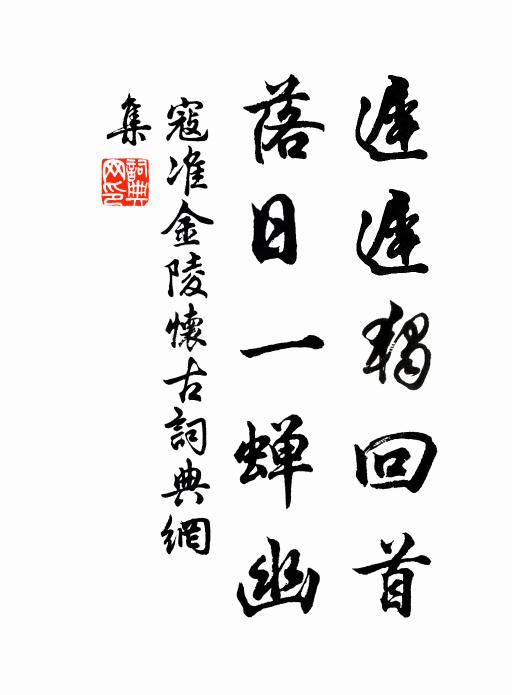 遲遲獨回首
落日一蝉幽
寇准金陵懷古詞典網
集
詞典網印